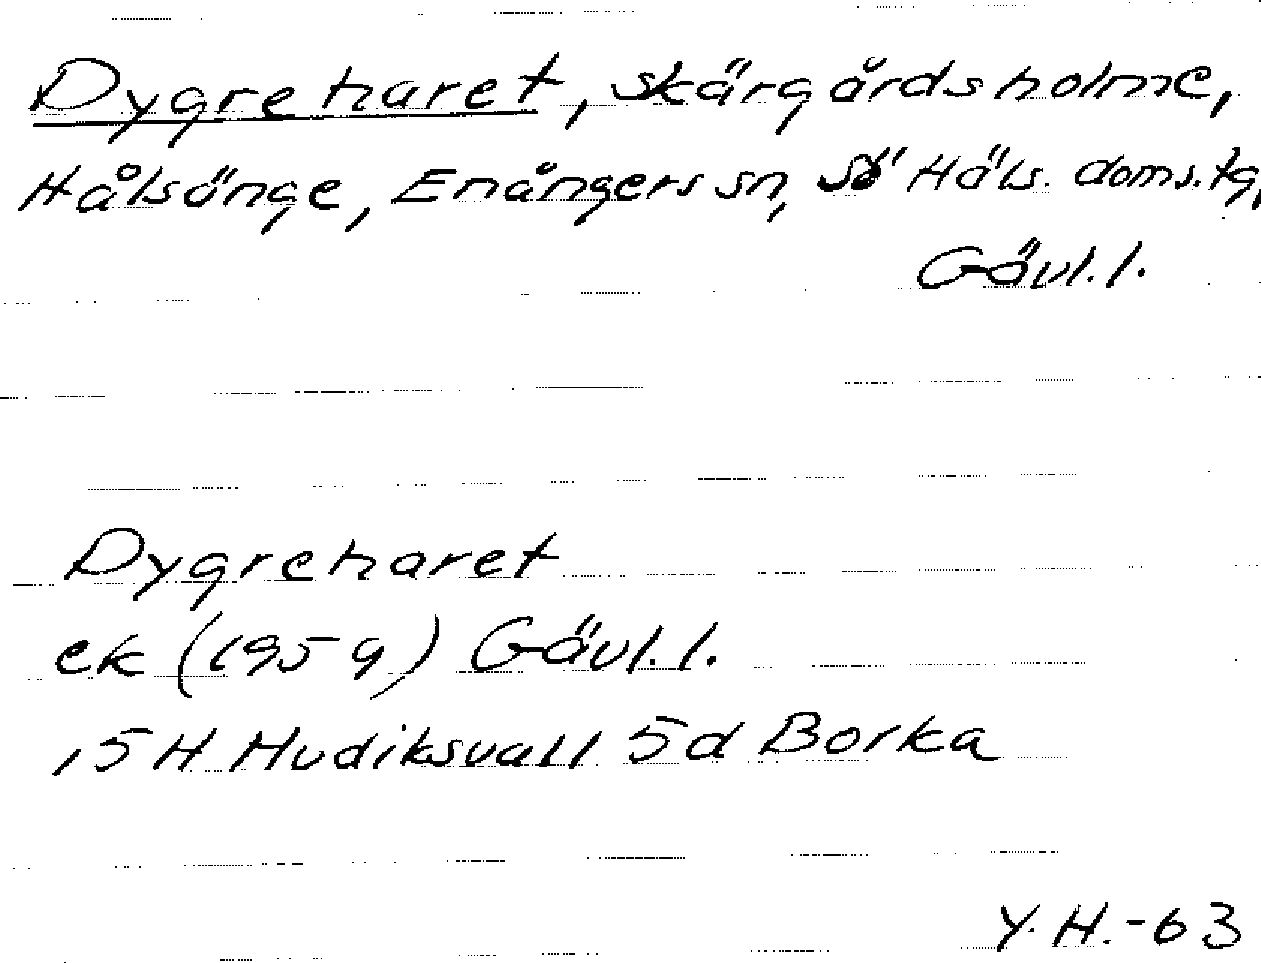 Dygreharet, skärgårdsholme,
Hålsänge, Enångers sn, Sö Häls. doms.tg,
Gävl. l.
Dygreharet
ek (1959) Gävl. l.
15H Hudiksvall 5d Borka
Y. H. -63